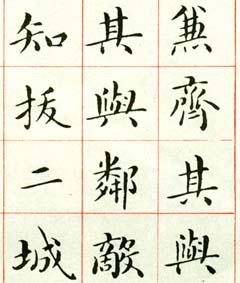 兼齊其與
其與鄰敵
知拔二城